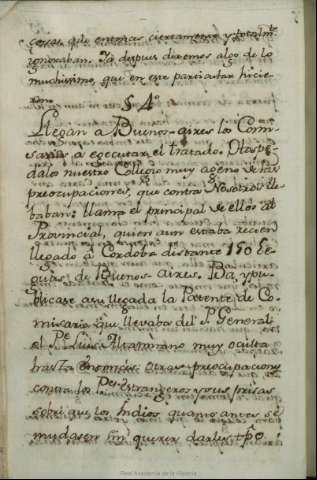 cosas que entonces ciertamente y totalm.te
ignoraban. Ya despues diremos algo de lo
muchisimo, que en este particular hicie
ron.
§ 4º
Llegan a Buenos-aires los Comi
sarios a egecutar el tratado. Ospe
dalos nuestro Collegio muy ageno de las
preocupaciones, que contra Nosotros lle
baban: llama el principal de ellos al
Provincial, quien aun estaba recien
llegado a Cordoba distante 150 le
guas de Buenos Aires. Ba, y pu
blicase a su llegada la Patente de Co
misario que llevaba del P. General
el P.e Luis Altamirano muy oculta
hasta entonces. Otras preocupaciones
contra los P.es Estrangeros y sus prisas
sobre que los Indios quanto antes se
mudasen sin querer darles tpo.
Real Academia de la Historia